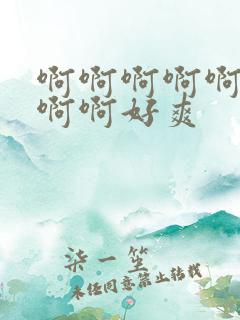 啊啊啊啊啊
啊啊好爽
柒一笙
未经同意禁止转载